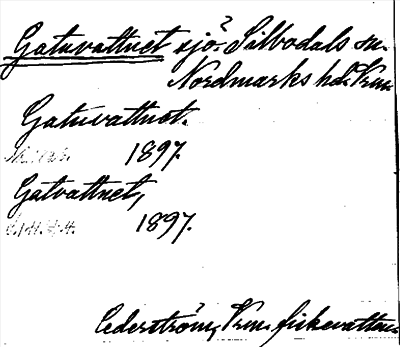 Gatuvattnet sjö? Silbodals sn.
Nordmarks hd. Vrm.
Gatuvattnet.
1897.
Gatvattnet,
1897.
Cederström, Vrm. fiskevatten.